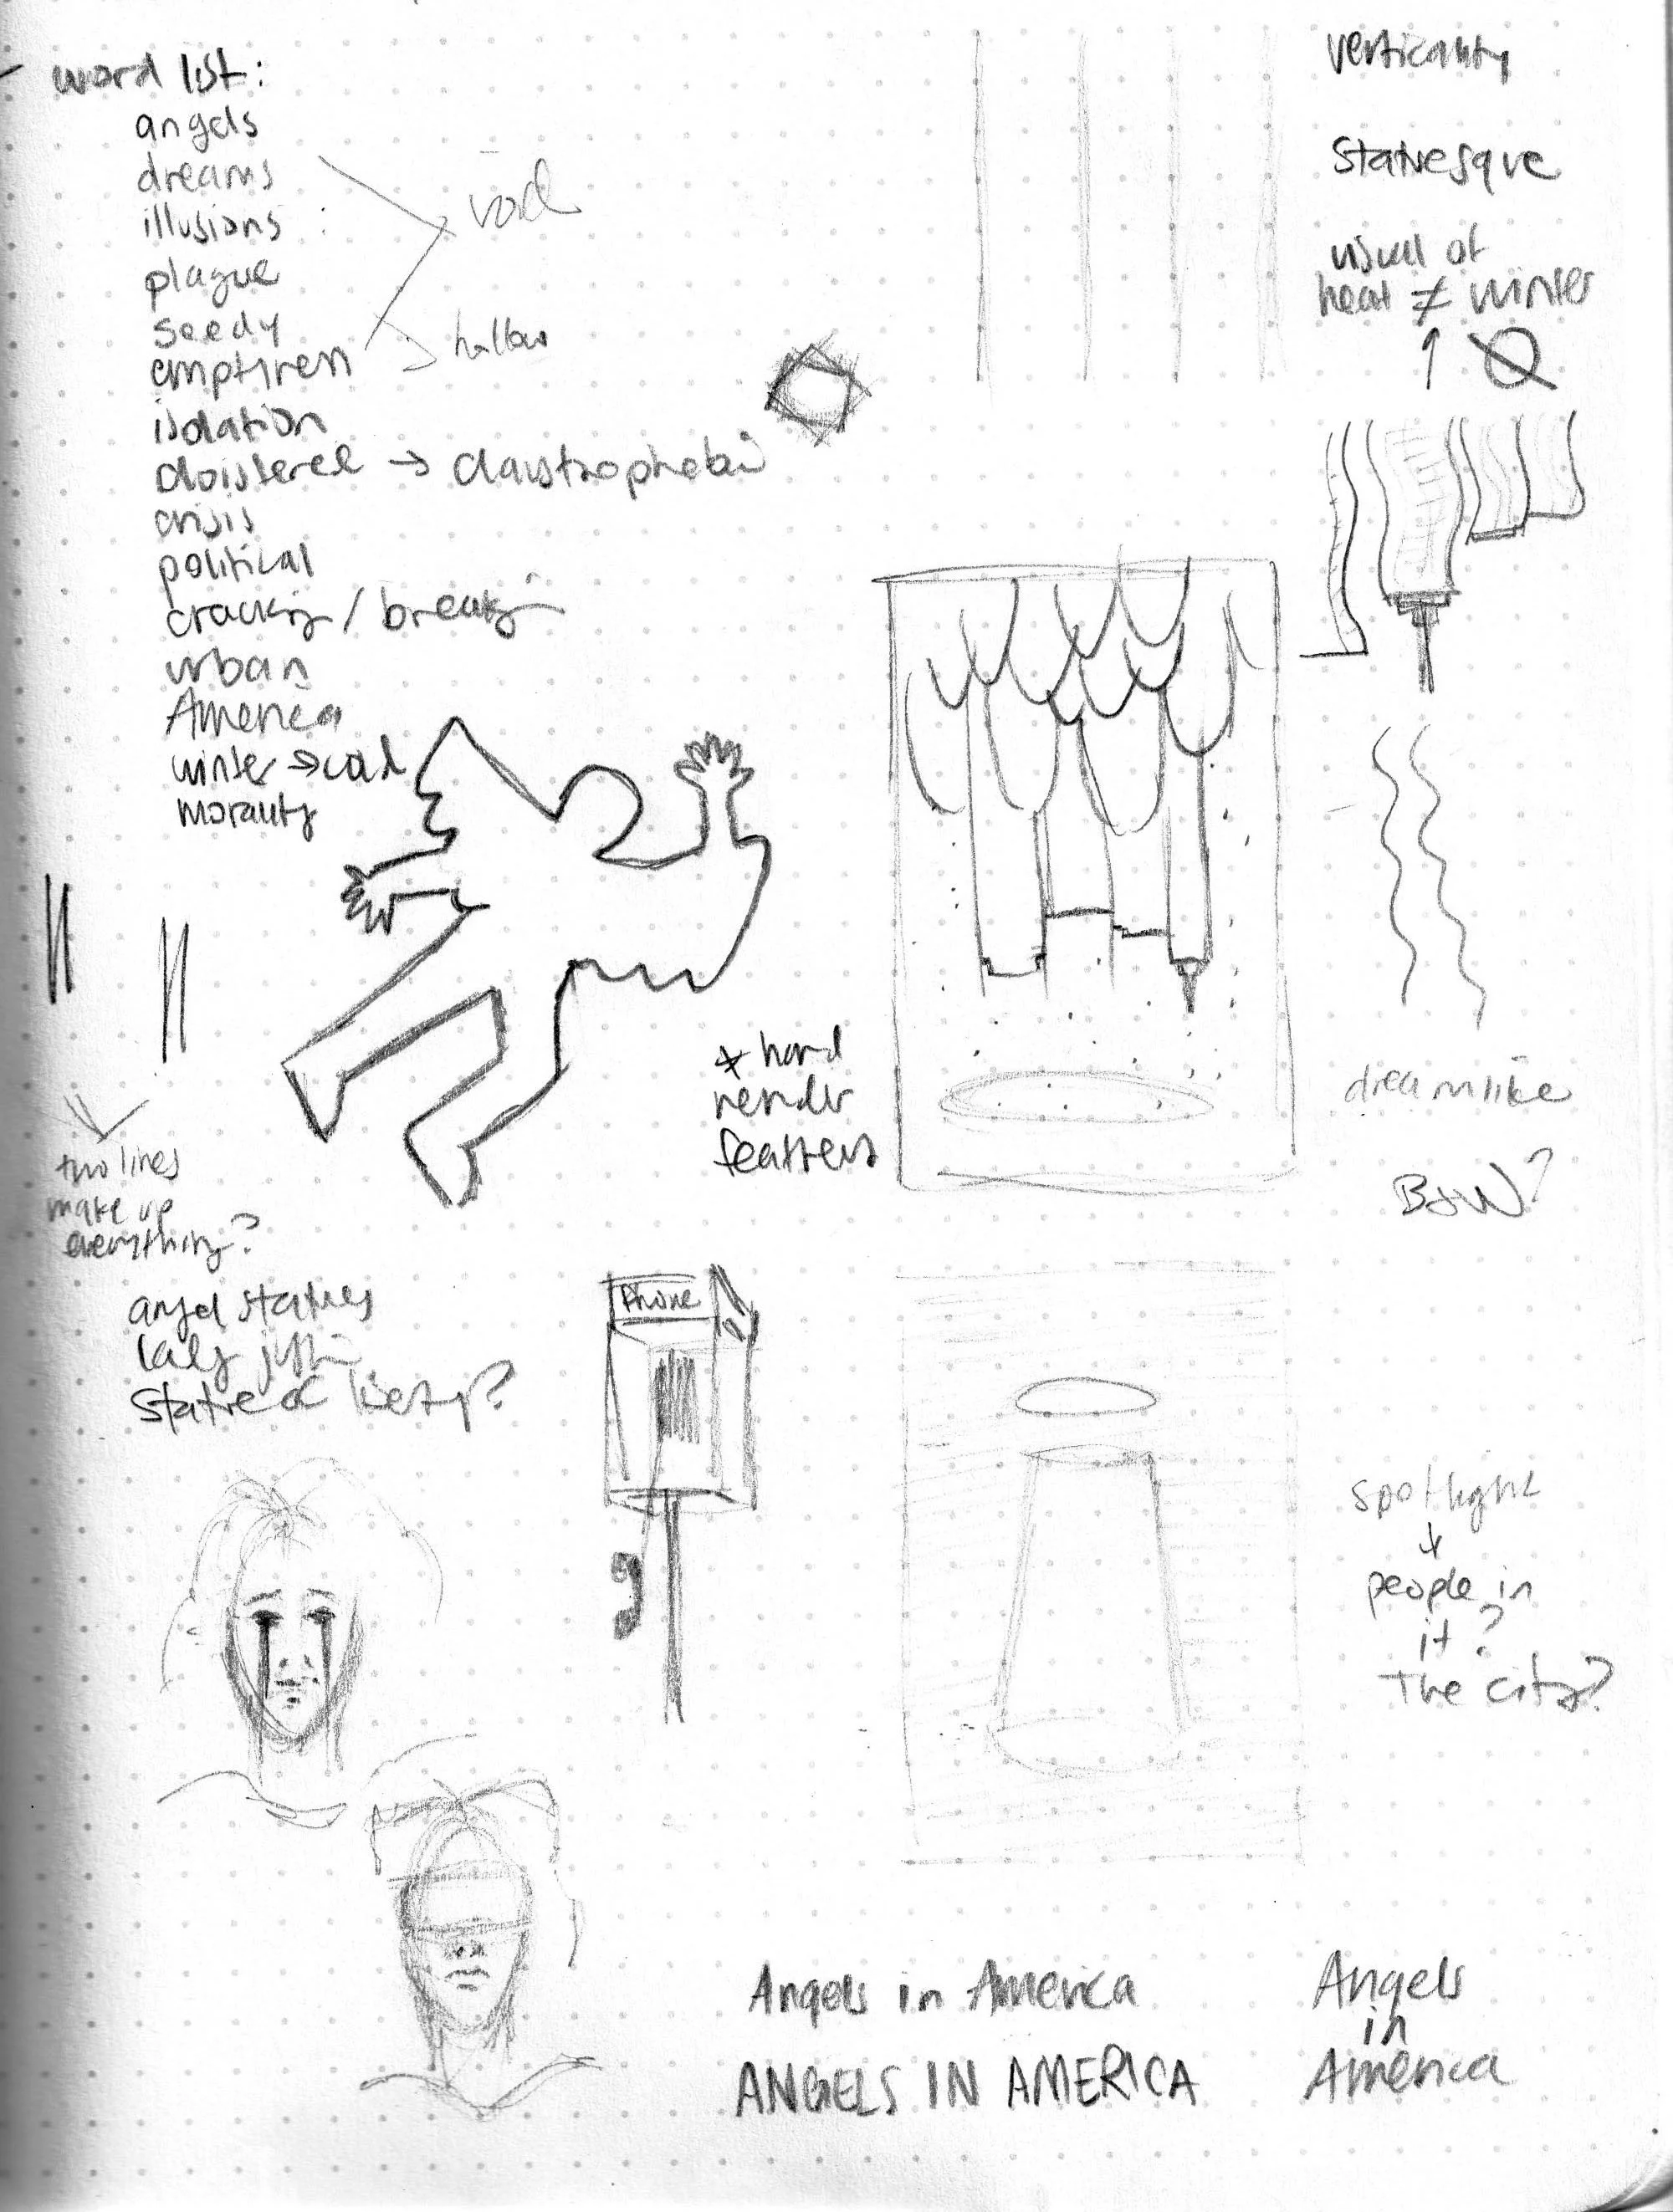 word list:
angels
dreams
illusions
void
plague
seedy
emptiness
hollow
isolation
cloistered → claustrophobia
crisis
political
cracking / breaking
urban
America
winter → cold
morality
verticality
statuesque
visual of
heat ≠ winter
* hand
render
feathers
dreamlike
B+W?
two lines
make up
everything?
angel statues
lady justice
statue of liberty?
Phone
spotlight
people in
it?
The city?
Angels in America
ANGELS IN AMERICA
Angels
in
America